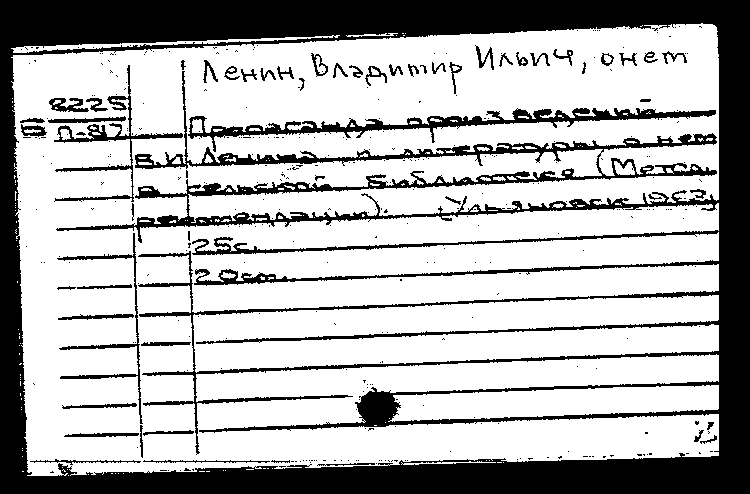 Ленин, Владимир Ильич, о нем
8225
Б П-817
Пропаганда произведений
В.И. Ленина и литературы о нем
в сельской библиотеке (Метод.
рекомендации). (Ульяновск, 1963)
25с.
20см.